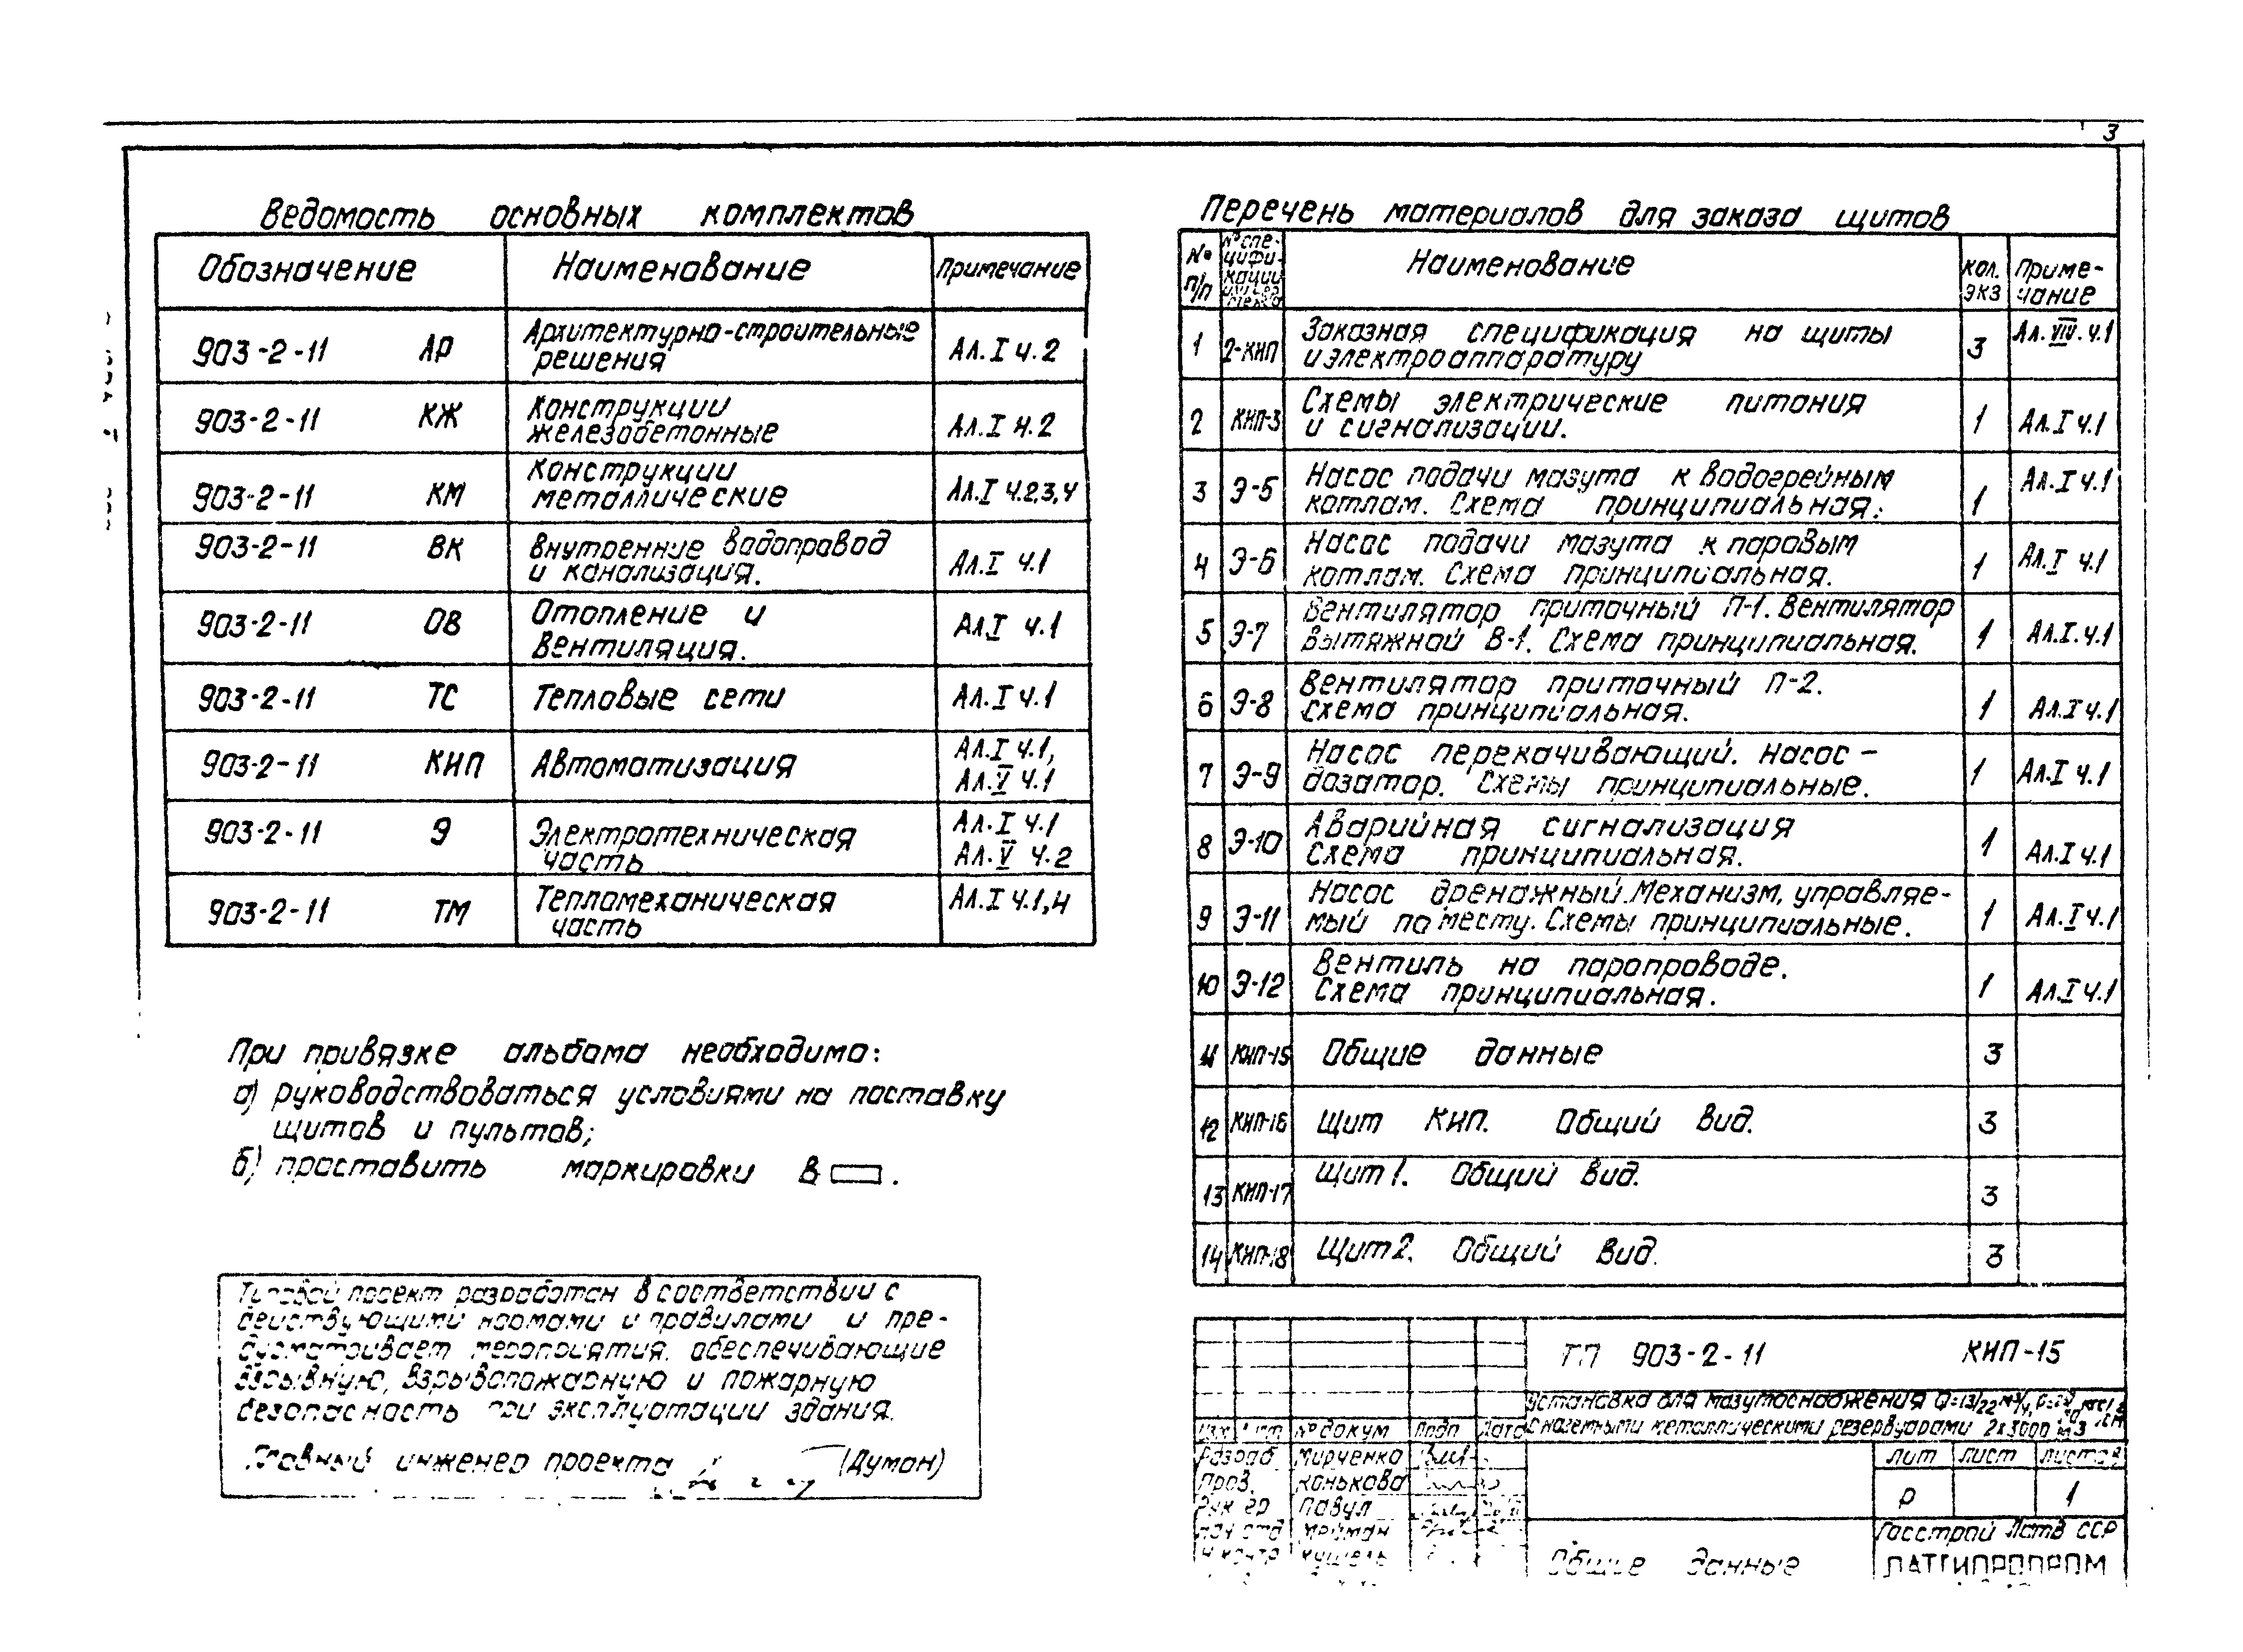 3
Ведомость основных комплектов
Обозначение Наименование Примечание
903-2-11 АР Архитектурно-строительные решения Ал.I ч.2
903-2-11 КЖ Конструкции железобетонные Ал.I ч.2
903-2-11 КМ Конструкции металлические Ал.I ч.2,3,4
903-2-11 ВК Внутренние водопровод и канализация. Ал.I ч.1
903-2-11 ОВ Отопление и вентиляция. Ал.I ч.1
903-2-11 ТС Тепловые сети Ал.I ч.1
903-2-11 КИП Автоматизация Ал.I ч.1, Ал.V ч.1
903-2-11 Э Электротехническая часть Ал.I ч.1 Ал.V ч.2
903-2-11 ТМ Тепломеханическая часть Ал.I ч.1,4
При привязке альбома необходимо:
а) руководствоваться условиями на поставку
щитов и пультов;
б) проставить маркировки в .
Типовой проект разработан в соответствии с
действующими нормами и правилами и пре-
дусматривает мероприятия, обеспечивающие
взрывную, взрывопожарную и пожарную
безопасность при эксплуатации здания.
Главный инженер проекта (Думан)
Перечень материалов для заказа щитов
№ п/п № спе- цифи- кации Наименование кол. экз Приме- чание
1 2-КИП Заказная спецификация на щиты и электроаппаратуру 3 Ал.VIII.ч.1
2 КИП-3 Схемы электрические питания и сигнализации. 1 Ал.I ч.1
3 Э-5 Насос подачи мазута к водогрейным котлам. Схема принципиальная. 1 Ал.I ч.1
4 Э-6 Насос подачи мазута к паровым котлам. Схема принципиальная. 1 Ал.I ч.1
5 Э-7 Вентилятор приточный П-1. Вентилятор вытяжной В-1. Схема принципиальная. 1 Ал.I.ч.1
6 Э-8 Вентилятор приточный П-2. Схема принципиальная. 1 Ал.I ч.1
7 Э-9 Насос перекачивающий. Насос - дозатор. Схемы принципиальные. 1 Ал.I ч.1
8 Э-10 Аварийная сигнализация Схема принципиальная. 1 Ал.I ч.1
9 Э-11 Насос дренажный. Механизм, управляе- мый по месту. Схемы принципиальные. 1 Ал.I ч.1
10 Э-12 Вентиль на паропроводе. Схема принципиальная. 1 Ал.I ч.1
11 КИП-15 Общие данные 3
12 КИП-16 Щит КИП. Общий вид. 3
13 КИП-17 Щит 1. Общий вид. 3
14 КИП-18 Щит 2. Общий вид. 3
ТП 903-2-11 КИП-15
Установка для мазутоснабжения Q=13/22 м³/ч,
с наземными металлическими резервуарами 2х3000 м3
Изм Лист № докум Подп Дата
Разраб Мирченко
Пров. Конькова
Рук гр Павул
Нач отд Мейман
Н контр Кушель
Лит Лист Листов
Р 1
Общие данные
Госстрой Латв ССР
ЛАТГИПРОПРОМ